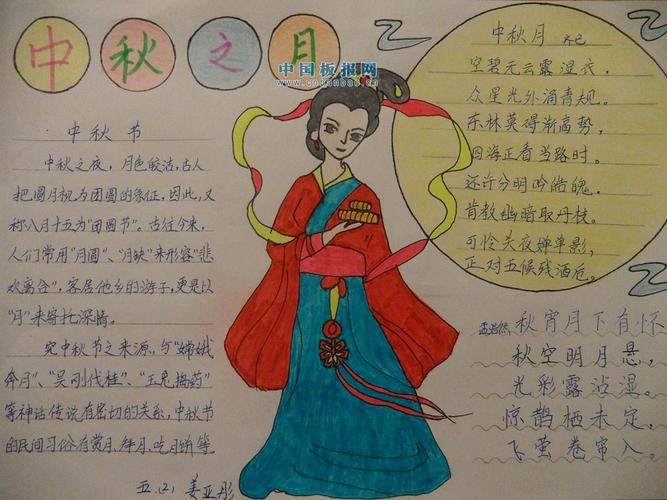 中秋之月
中国板报网
www.cnbanbao.cn
中秋节
中秋之夜，月色皎洁，古人
把圆月视为团圆的象征，因此，又
称八月十五为“团圆节”。古往今来，
人们常用“月圆”、“月缺”来形容“悲
欢离合”，客居他乡的游子，更是以
“月”来寄托深情。
究中秋节之来源，与“嫦娥
奔月”、“吴刚伐桂”、“玉兔捣药”
等神话传说有密切的关系，中秋节
的民间习俗有赏月、拜月、吃月饼等
五.(2) 姜亚彤
中秋月 齐己
空碧无云露湿衣，
众星光外涌青规。
东林莫碍渐高势，
四海正看当路时。
还许分明吟皓魄，
肯教幽暗取丹枝。
可怜关夜婵单影，
正对五候残酒卮。
孟浩然 秋宵月下有怀
秋空明月悬，
光彩露沾湿。
惊鹊栖未定，
飞萤卷帘入。